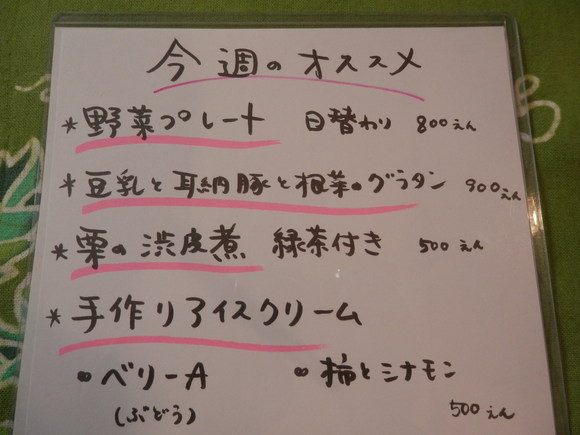 今週のオススメ
*野菜プレート 日替わり 800えん
*豆乳と耳納豚と根菜のグラタン 900えん
*栗の渋皮煮 緑茶付き 500えん
*手作りアイスクリーム
•ベリーA •柿とシナモン
(ぶどう) 500えん